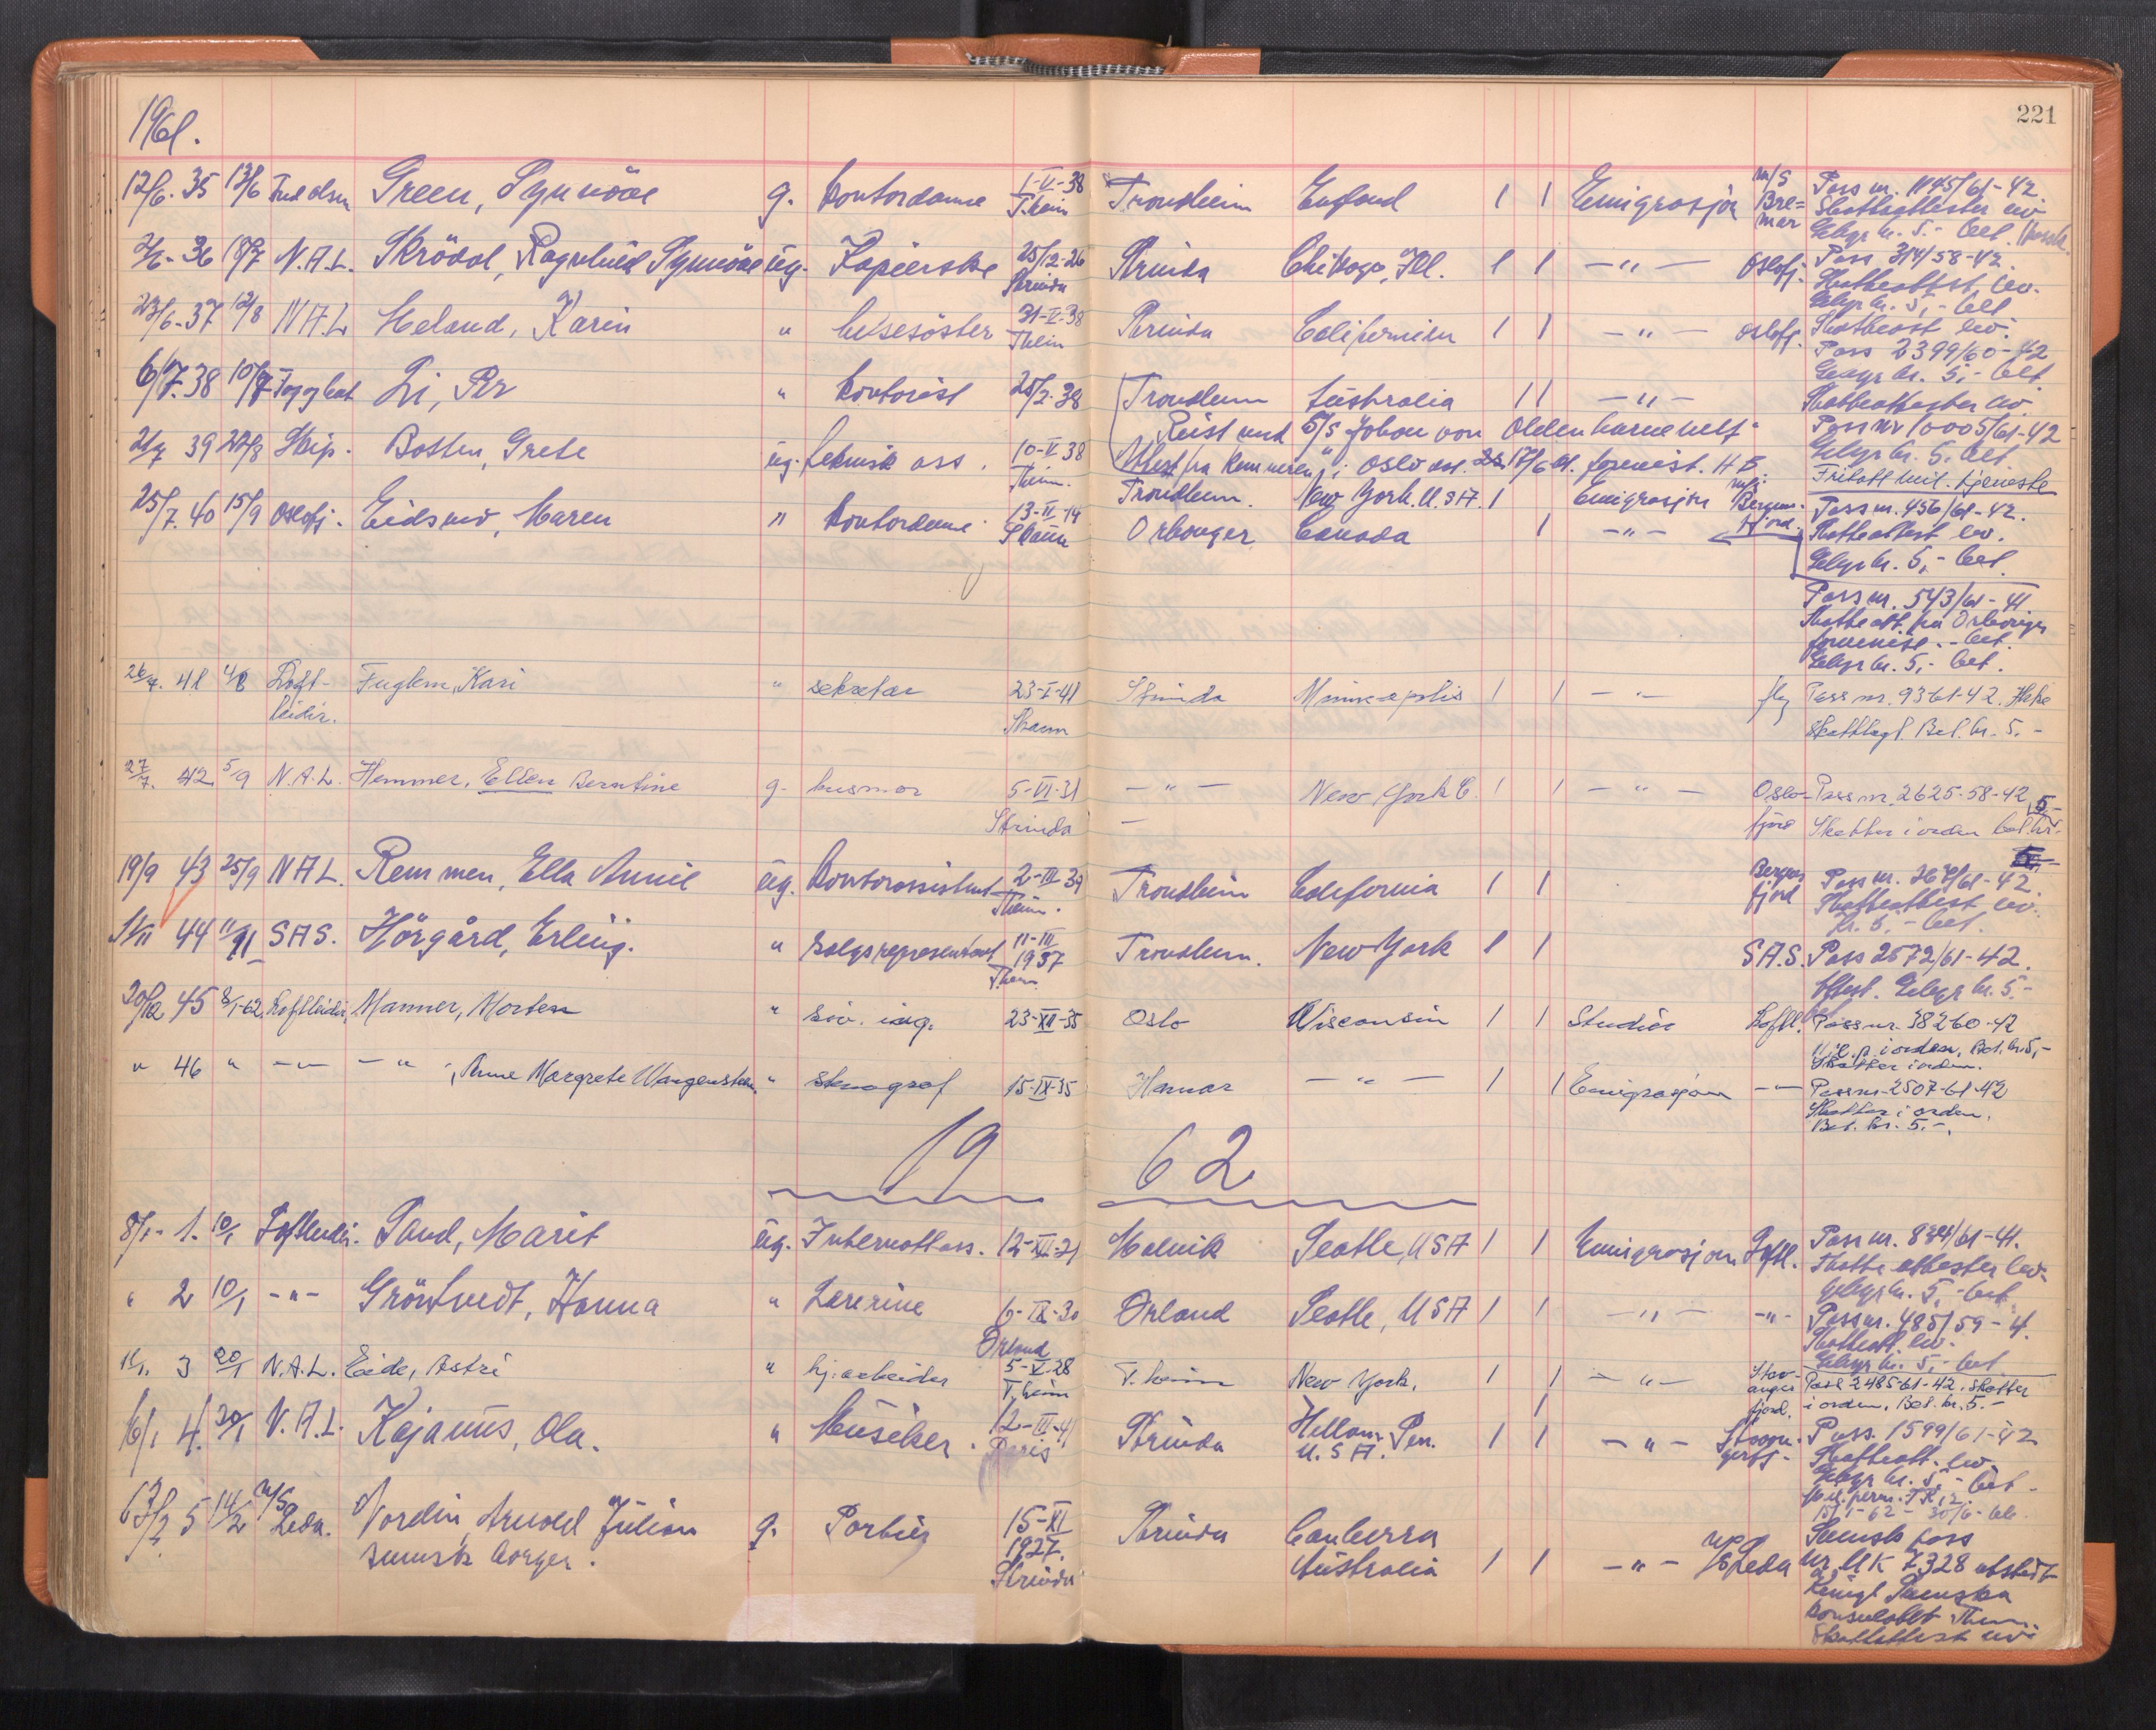 1961.
221
12/6. 35 13/6 Fred Olsen Green, Synnöve g. Kontordame 1-V-38 Trondheim England 1 1 Emigrasjon M/S Pass nr. 1145/61-42
T.heim Bre= Skatteattester lev.
mar Gebyr kr. 5.- bet.
36 18/7 N.A.L. Skrödal, Ragnhild Synnöve ug. Kopierske 25/12-26 Strinda Chikago, Ill. 1 1 -"- Oslofj. Pass 314/58-42
Strinda Skatteattest lev.
Gebyr kr. 5,- bet
23/6-37 12/8 N.A.L Meland, Karin " helsesöster 31-V-38 Strinda Californien 1 1 -"- Oslofj. Skatteatt lev.
T.heim Pass 2399/60-42
Gebyr kr. 5,- bet.
6/7.38 10/7 Li, Per " Kontorist 25/2-38 Trondheim Australia 1 1 -"- Skatteattester lev.
Reist med S/S Johan von Oldenbarnevelt Pass nr 10005/61-42
39 Skip. Botten, Grete ug. teknisk ass. 10-V-38 Attest fra kemneren i Oslo dat. 17/6-61. forevist. H B. Gebyr 5. bet
T.heim. Fritatt mil. tjeneste
25/7. 40 15/9 Oslofj. Eidsmo, Maren " Kontordame 13-II-19 Trondheim. New York. U.S.A. 1 Emigrasjon m/s Bergens- Pass nr. 456/61-42.
Orkanger Canada 1 -"- fjord. Skatteattest lev.
Gebyr kr. 5,- bet.
Pass nr. 543/61-41
Skatteatt. fra Orkanger
forevist. - bet.
Gebyr kr. 5,- bet.
41 4/8 Loft- Fuglem, Kari " sekretær 23-I-41 Strinda Minneapolis 1 1 -"- fly Pass nr. 9361-42.
leidir. Skaun Bet. kr. 5.-
27/7. 42 5/9 N.A.L. Hemmer, Ellen Berntine g. husmor 5-VI-31 -"- New York C. 1 1 -"- Oslo- Pass nr. 2625-58-42
Strinda fjord Skatter i orden bet. kr. 5-
19/9 43 25/9 NAL. Remmen, Ella Annie ug. Kontorassistent 2-III-39 Trondheim California 1 1 Bergens Pass nr. 367/61-42.
T.heim. fjord Skatteattest lev.
Kr. 5,- bet.
44 11/11 SAS. Hörgård, Erling. " Salgsrepresentant 11-III Trondheim. New York 1 1 S.A.S. Pass 2572/61-42.
1937 Attest. Gebyr kr. 5.-
T.heim
20/12 45 8/1-62 Loftleidir, Manner, Morten " siv. ing. 23-XII-35 Oslo Wisconsin 1 1 Studier Loftl. Pass nr. 38260-42
Mil. p. i orden, Bet. kr. 5,-
Skatter i orden.
" 46 " -"- -"-, Anne Margrete Wangensteen " stenograf 15-IX-35 Hamar -"- 1 1 Emigrasjon -"- Pass nr. 2507-61-42
Skatter i orden.
Bet. kr. 5.-.
19 62
8/1- 1. 10/1 Loftleidir. Sand, Marit ug. Internattass. 12-XII-21 Malvik Seatle, USA 1 1 Emigrasjon Loftl. Pass nr. 834/61-41.
Skatteattester lev.
Gebyr kr. 5,- bet.
" 2 10/1 -"- Gröntvedt, Hanna " Lærerine 6-IX-30 Ørland Seatle, USA 1 1 -"- -"- Pass nr. 485/59-4.
Ørland Skatteatt. lev.
Gebyr kr. 5,- bet
3 20/1 N.A.L. Eide, Astri " hj.arbeider 5-V-28 T.heim New York. 1 1 -"- Stav- Pass 2485-61-42. skatter
T.heim anger i orden, Bet. kr. 5.-
fjord.
16/1 4. 20/1 N.A.L. Kajanus, Ola. " Musiker. 12-III-41 Strinda Pen. 1 1 -"- Pass. 1599/61-42
Paris U.S.A. Skatteatt. lev.
Gebyr kr. 5,- bet.
Mil. perm.
15/1-62 - 30/6-66.
5 14/2 M/S Nordin, Arnold Julian g. Portier 15-XI Strinda Canberra Svensk pass
Leda. svensk borger. 1927. Australia 1 1 -"- Leda nr. UK 7328 utstedt
Strinda Kungl Svenska
konsulatet T.heim.
Skatteattest lev.